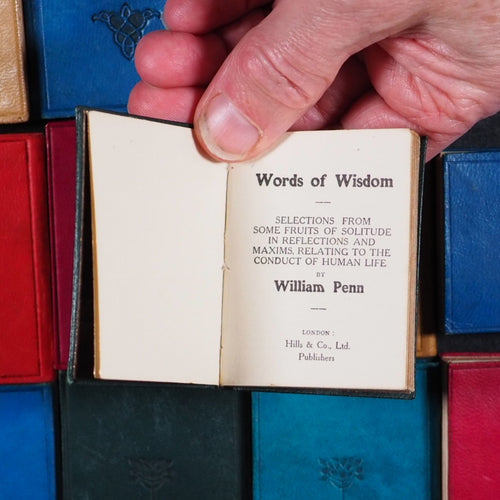 Words of Wisdom
SELECTIONS FROM
SOME FRUITS OF SOLITUDE
IN REFLECTIONS AND
MAXIMS, RELATING TO THE
CONDUCT OF HUMAN LIFE
BY
William Penn
LONDON :
Hills & Co., Ltd.
Publishers